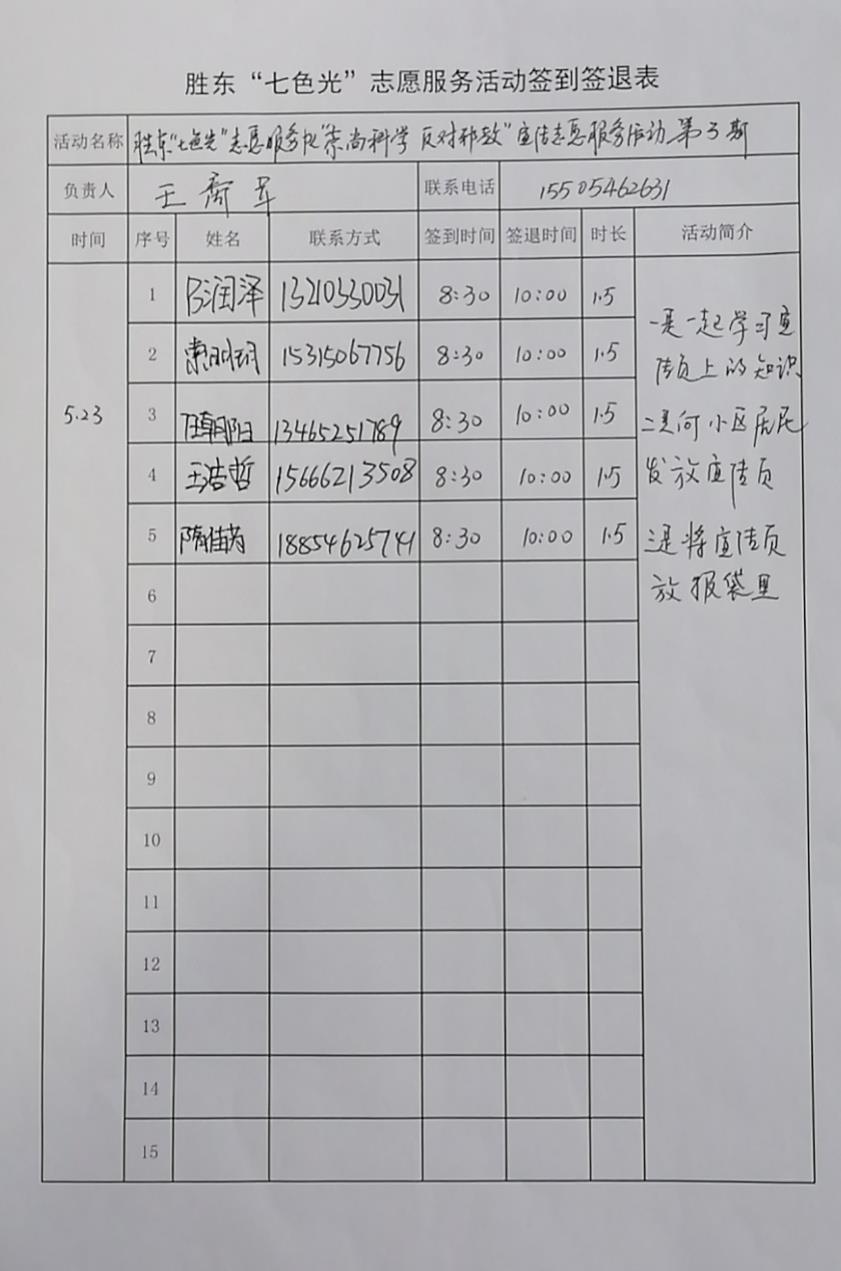 胜东“七色光”志愿服务活动签到签退表
活动名称 胜东“七色光”志愿服务队“崇尚科学 反对邪教”宣传志愿服务活动 第3期
负责人 王 军 联系电话 15505462631
时间 序号 姓名 联系方式 签到时间 签退时间 时长 活动简介
5.23
1 润泽 13210330031 8:30 10:00 1.5
2 15315067756 8:30 10:00 1.5
3 任朝阳 13465251789 8:30 10:00 1.5
4 王浩哲 15666213508 8:30 10:00 1.5
5 隋佳 18854625741 8:30 10:00 1.5
6
7
8
9
10
11
12
13
14
15
一是一起学习宣
传页上的知识
二是向小区居民
发放宣传页
三是将宣传页
放报袋里